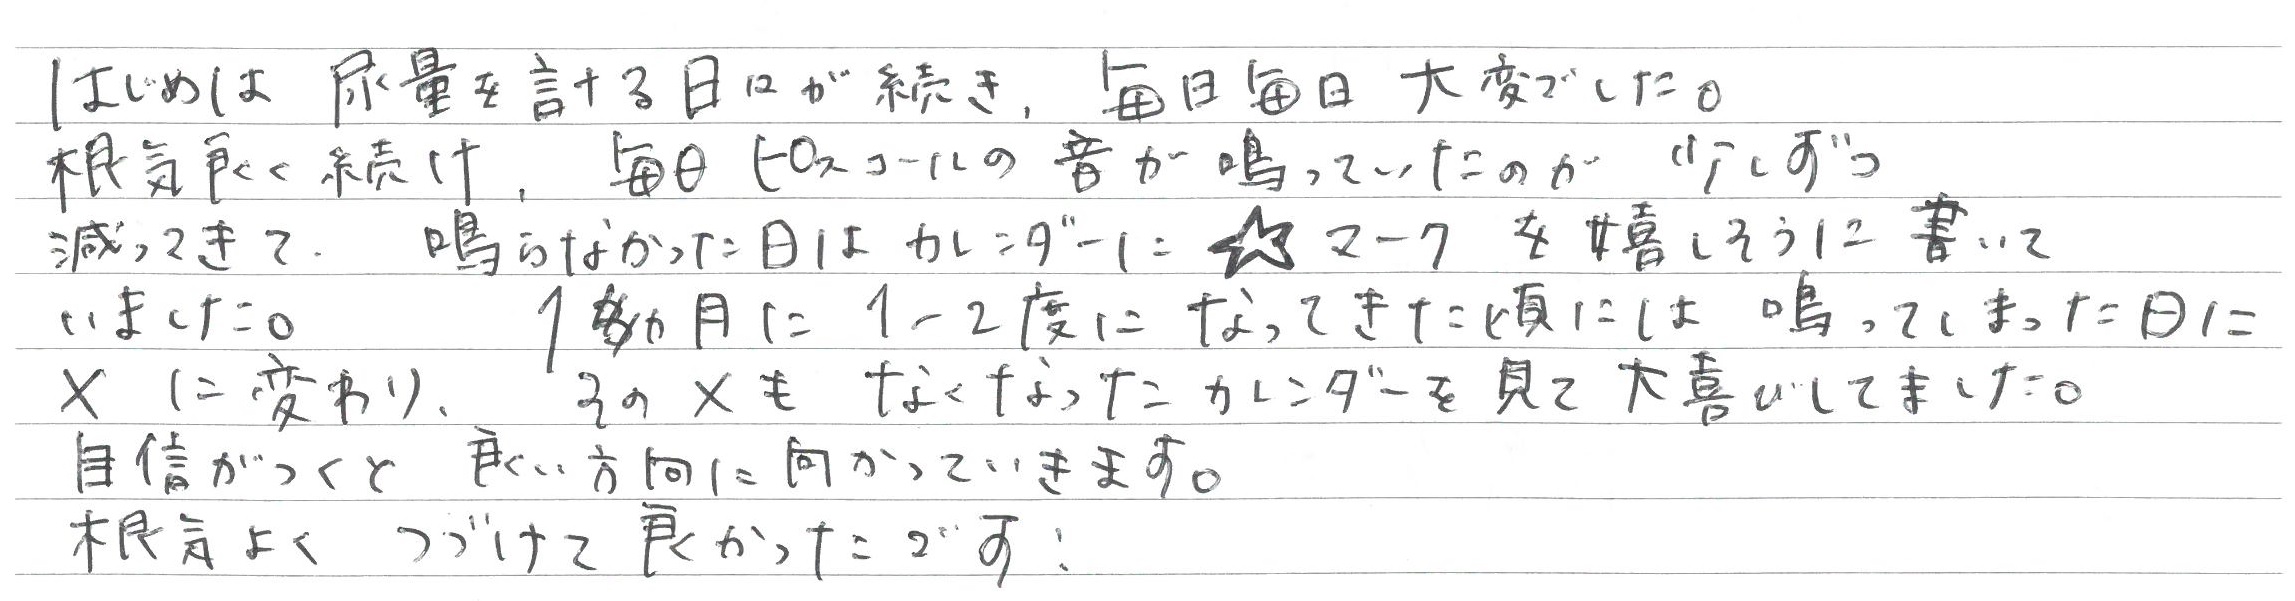 はじめは 尿量を計る日々が続き、毎日毎日 大変でした。
根気良く続け、毎日 ピスコールの音が鳴っていたのが 少しずつ
減ってきて、鳴らなかった日は カレンダーに ☆ マーク を 嬉しそうに 書いて
いました。 1ヶ月に 1~2度に なってきた頃には 鳴ってしまった日に
× に変わり、 その×も なくなった カレンダーを見て 大喜びしてました。
自信がつくと 良い方向に向かっていきます。
根気よく つづけて 良かったです!